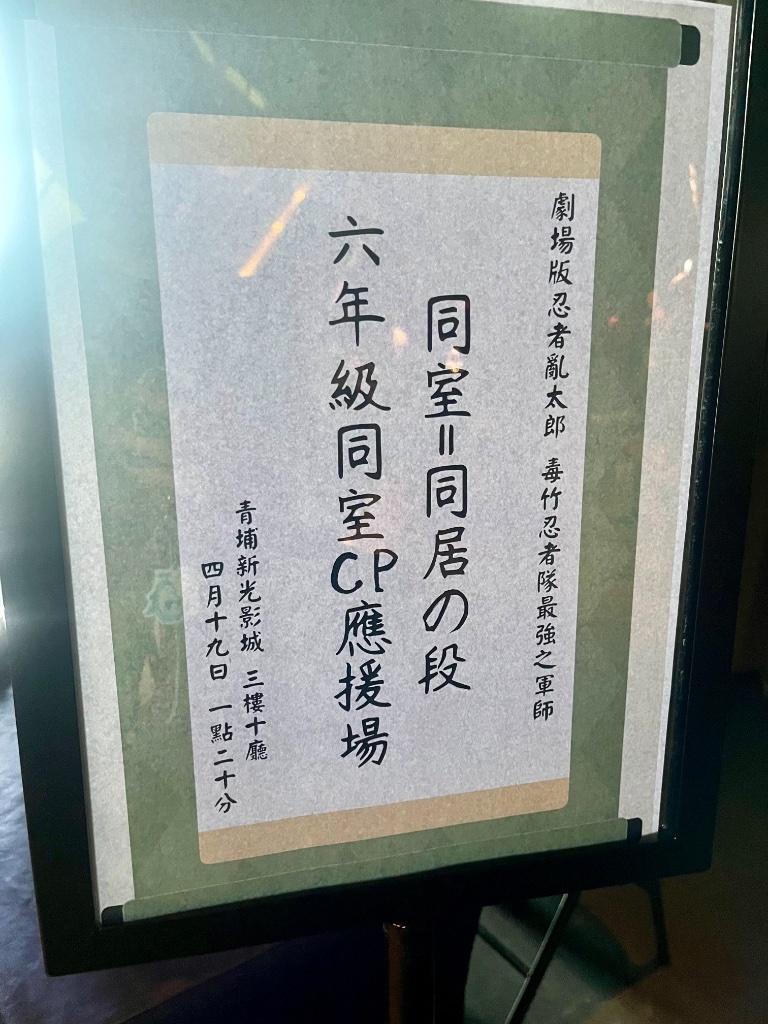 劇場版忍者亂太郎 毒竹忍者隊最強之軍師
同室=同居の段
六年級同室CP應援場
青埔新光影城 三樓十廳
四月十九日 一點二十分